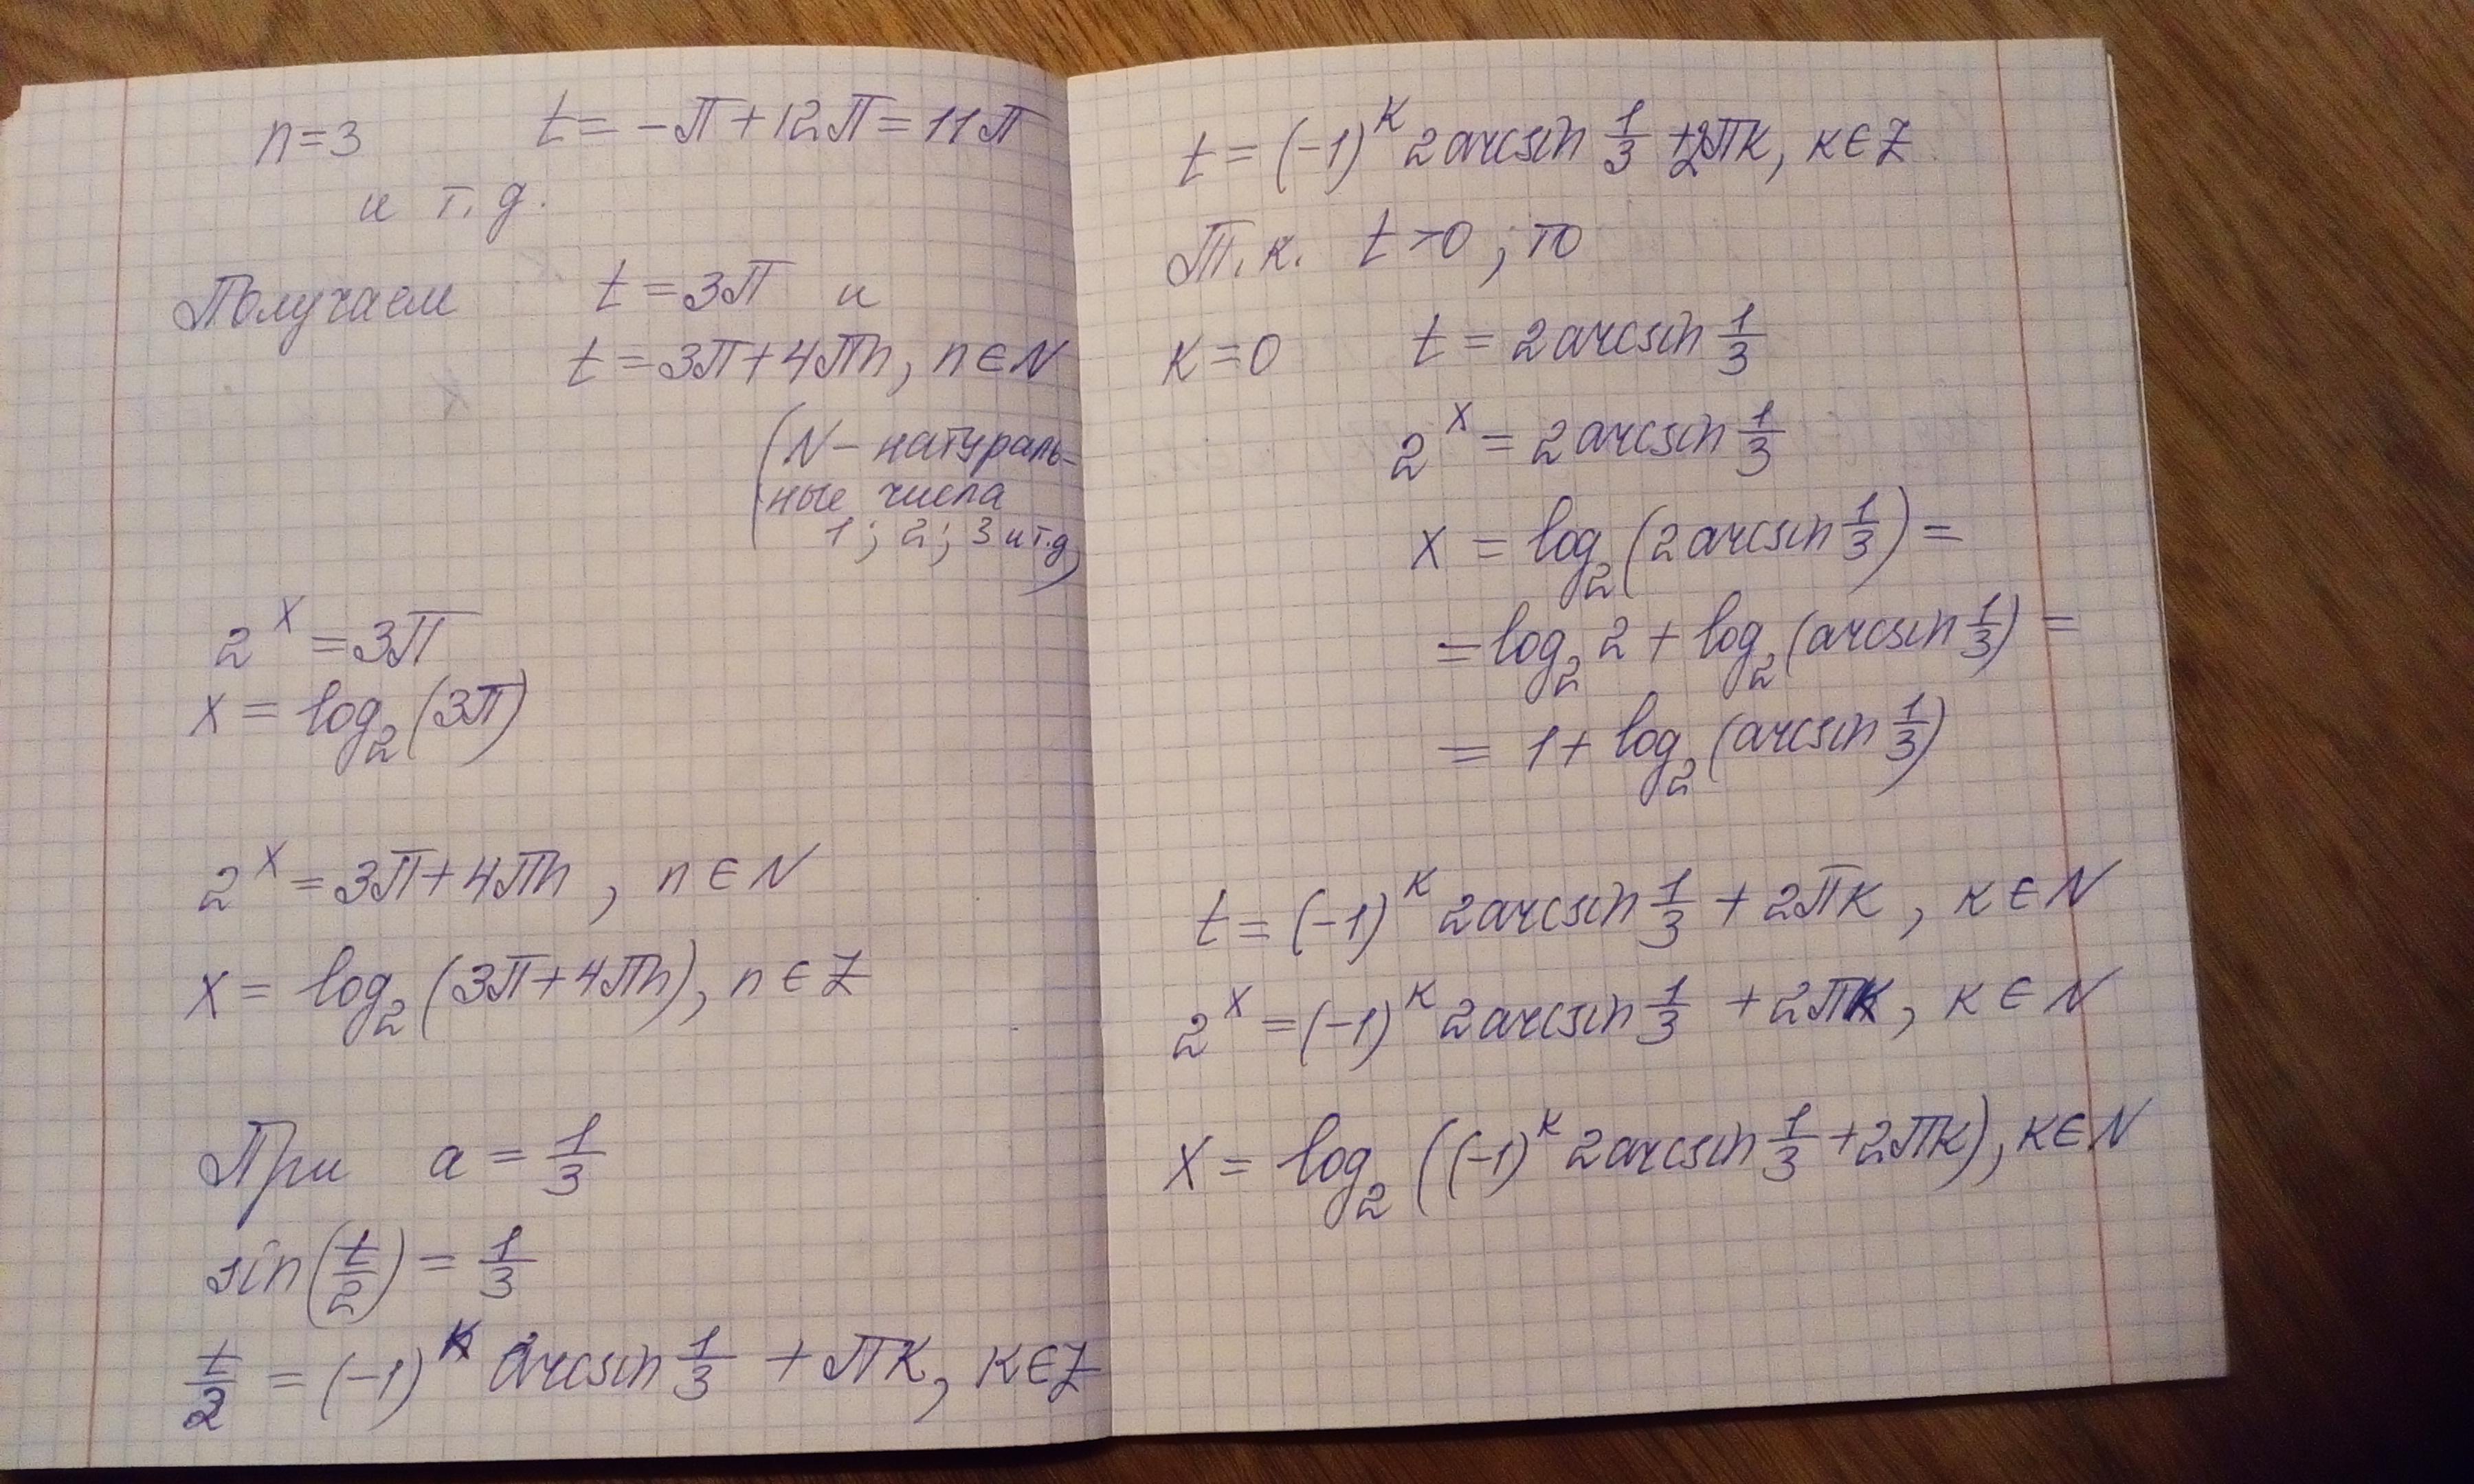 n=3 t = -π + 12π = 11π
и т.д.
Получаем t = 3π и
t = 3π + 4πn, n ∈ N
(N - натураль-
ные числа
1; 2; 3 и т.д)
2^x = 3π
x = log₂(3π)
2^x = 3π + 4πn, n ∈ N
x = log₂(3π + 4πn), n ∈ Z
При a = 1/3
sin(t/2) = 1/3
t/2 = (-1)^k arcsin 1/3 + πk, k ∈ Z
t = (-1)^k 2arcsin 1/3 + 2πk, k ∈ Z
Т.к. t > 0, то
k = 0 t = 2arcsin 1/3
2^x = 2arcsin 1/3
x = log₂(2arcsin 1/3) =
= log₂ 2 + log₂(arcsin 1/3) =
= 1 + log₂(arcsin 1/3)
t = (-1)^k 2arcsin 1/3 + 2πk, k ∈ N
2^x = (-1)^k 2arcsin 1/3 + 2πk, k ∈ N
x = log₂((-1)^k 2arcsin 1/3 + 2πk), k ∈ N